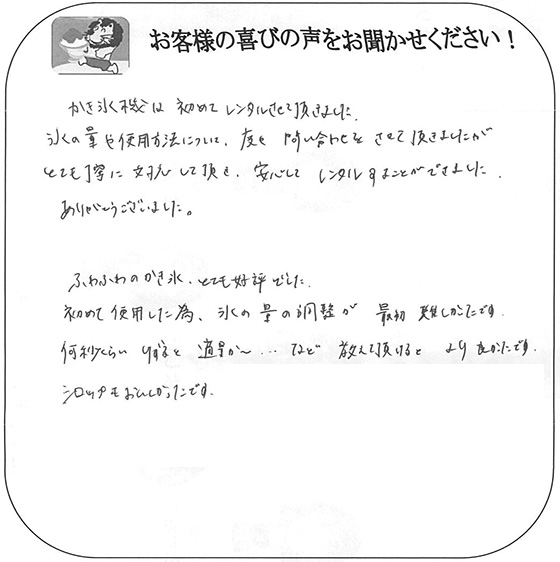 お客様の喜びの声をお聞かせください！
かき氷機は 初めて レンタルさせて頂きました。
氷の量や使用方法について、度々 問い合わせを させて頂きましたが
とても丁寧に 対応して頂き、安心して レンタルすることができました。
ありがとうございました。
ふわふわのかき氷、とても好評でした。
初めて使用した為、氷の量の調整が 最初 難しかったです。
何秒くらい 削ると 適量か〜… など 教えて頂けると より良かったです。
シロップもおいしかったです。